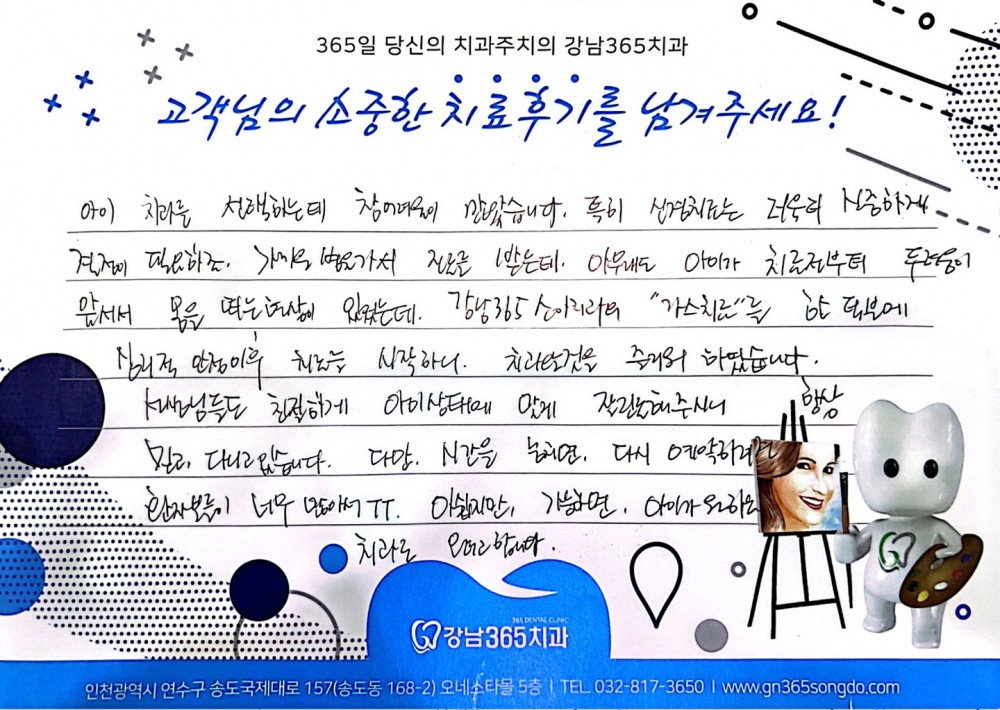 365일 당신의 치과주치의 강남365치과
고객님의 소중한 치료후기를 남겨주세요!
아이 치과를 선택하는데 참 어려움이 많았습니다. 특히 신경치료는 더욱더 신중하게
결정이 필요하죠. 가까운 병원가서 진료를 받는데. 아무래도 아이가 치료전부터 두려움이
앞서서 몸을 떠는 현상이 있었는데. 강남365 소아치과의 "가스치료"를 한 덕분에
심리적 안정이후 치료를 시작하니. 치과 오는것을 즐거워 하였습니다.
선생님들도 친절하게 아이상태에 맞게 잘 해주시니 항상
믿고, 다니고 있습니다. 다만, 시간을 놓치면, 다시 예약하려면
환자분들이 너무 많아서 TT. 아쉽지만, 가능하면, 아이가 원하는
치과로 오려고 합니다.
365 DENTAL CLINIC
강남365치과
인천광역시 연수구 송도국제대로 157(송도동 168-2) 오네스타몰 5층 | TEL. 032-817-3650 | www.gn365songdo.com